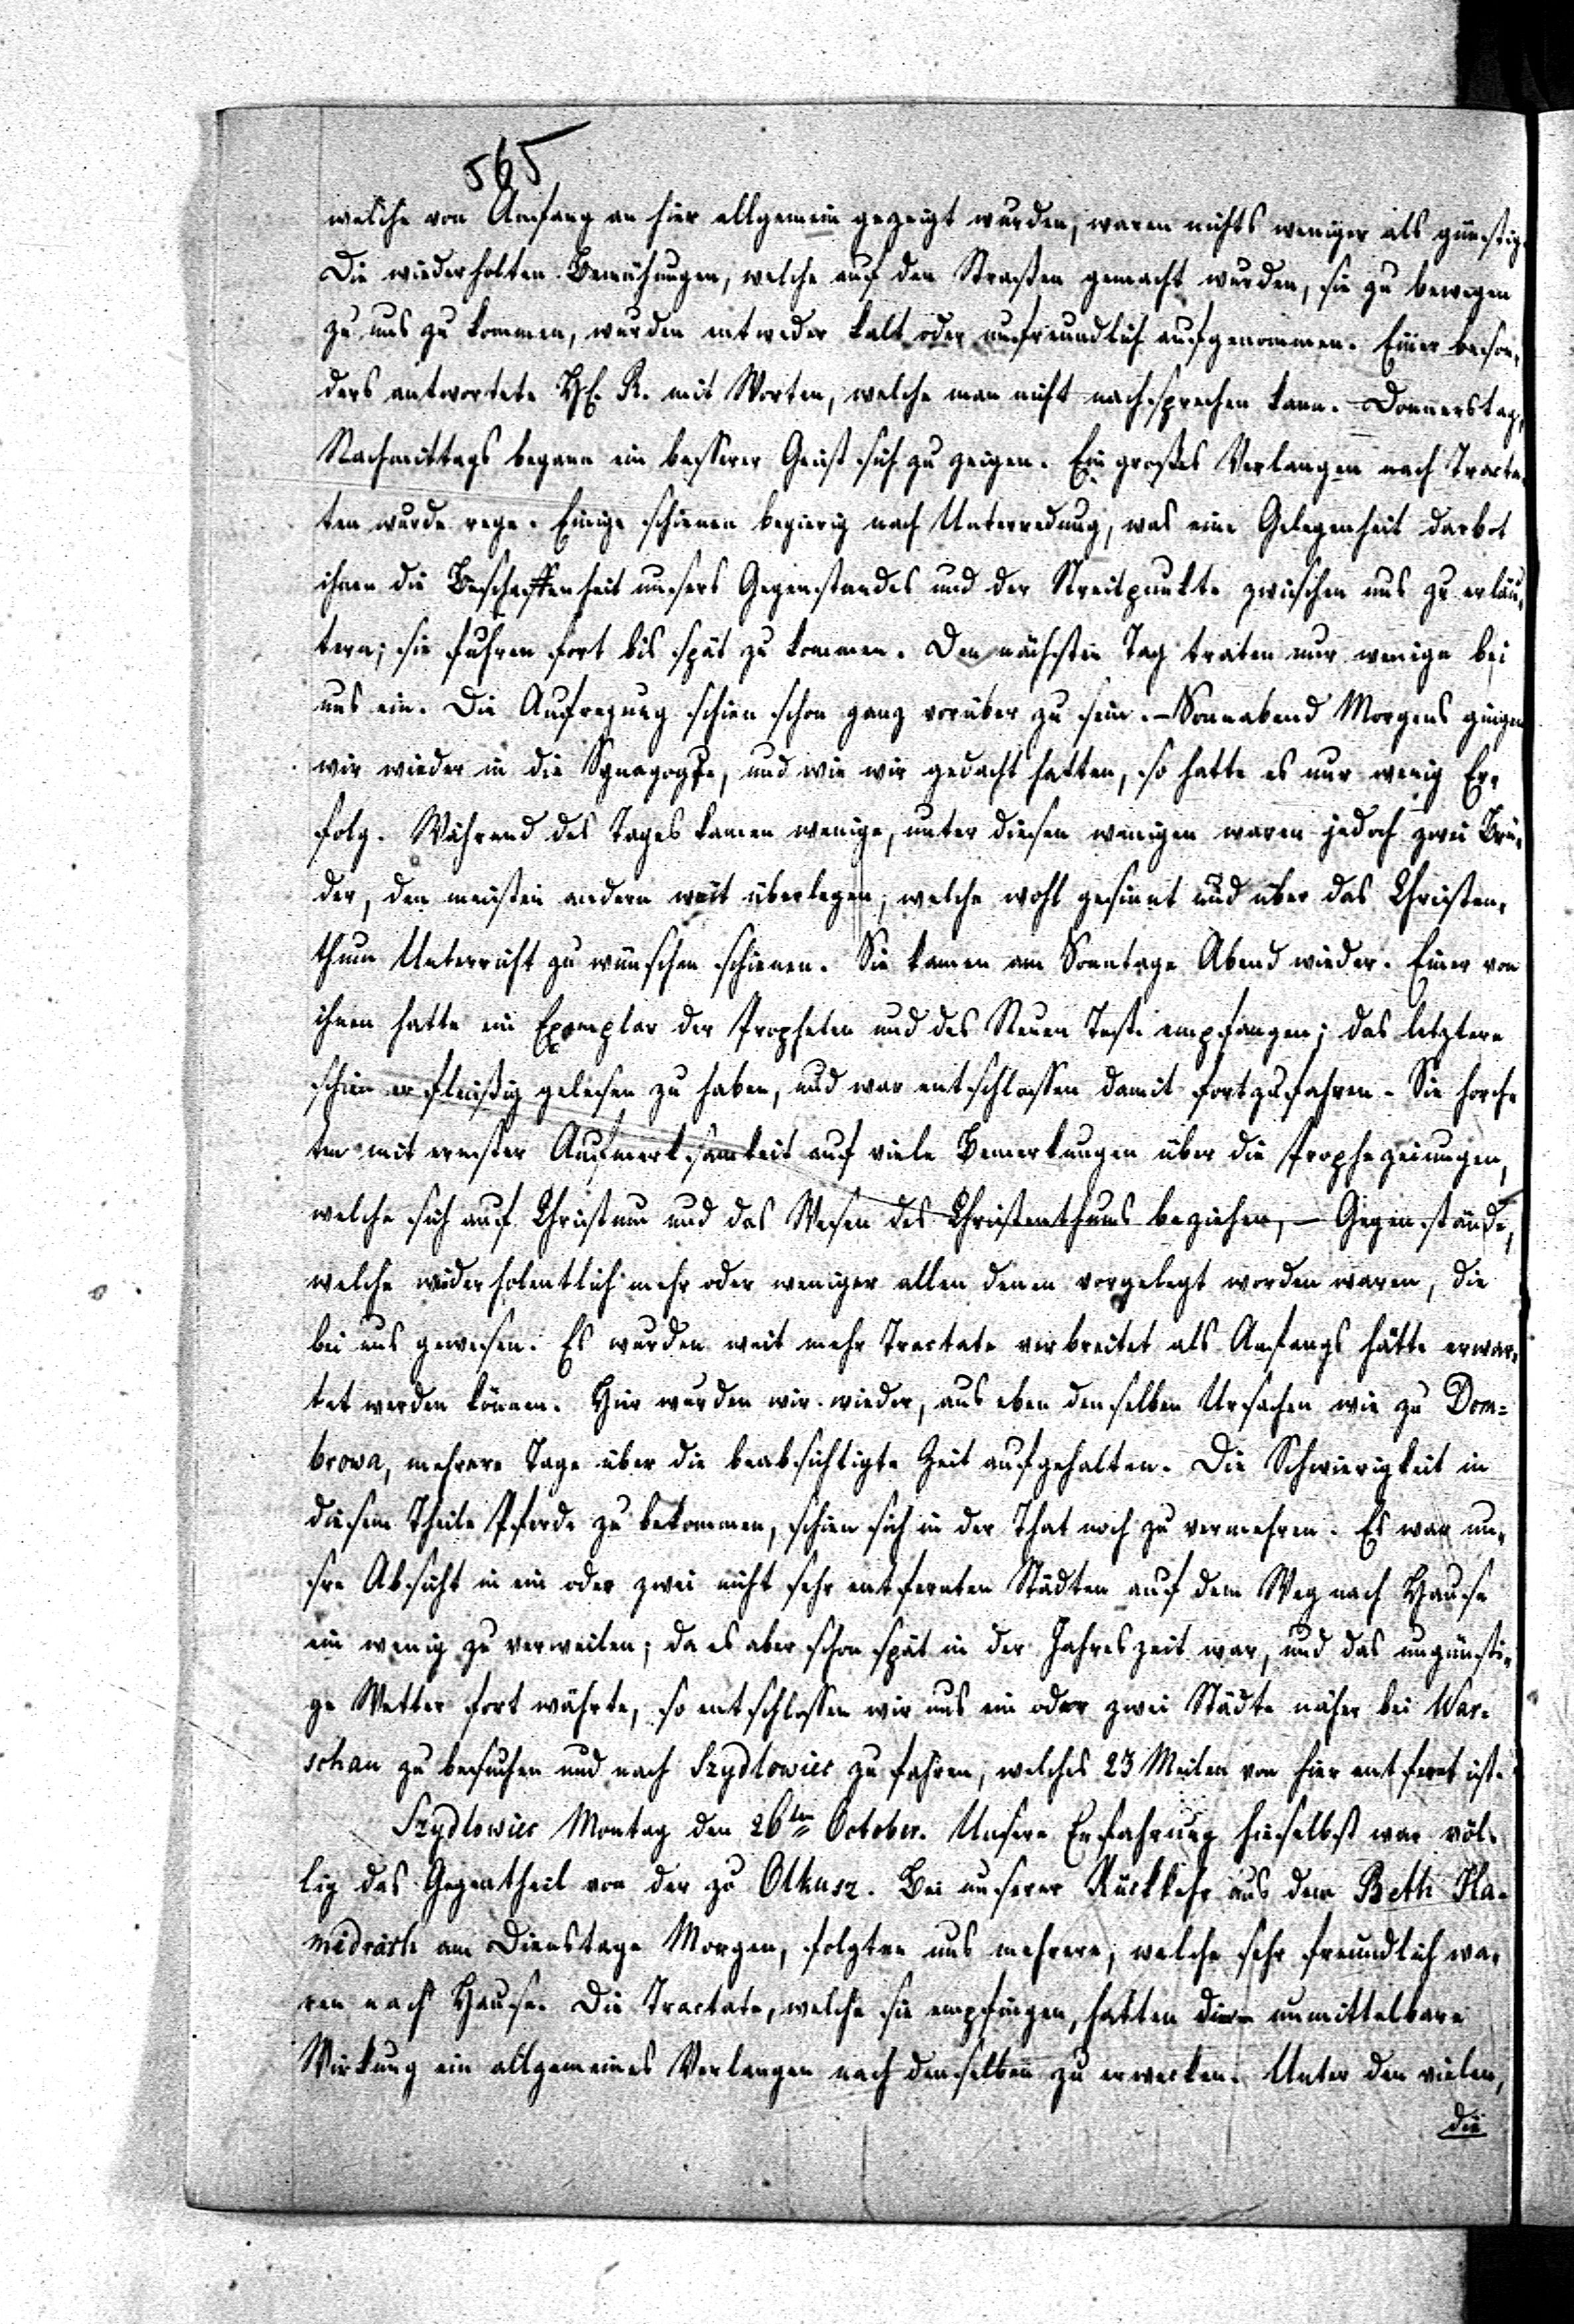 565
welche von Anfang an hier allgemein gezeigt wurden, waren nichts weniger als günstig.
Die wiederholten Bemühungen, welche auf den Straßen gemacht wurden, sie zu bewegen
zu uns zu kommen, wurden entweder kalt oder unfreundlich aufgenommen. Einer beson-
ders antwortete H. R. mit Worten, welche man nicht nachsprechen kann. – Donnerstag,
Nachmittags begann ein besserer Geist sich zu zeigen. Ein großes Verlangen nach Tracta-
ten wurde rege. Einige schienen begierig nach Unterredung, was eine Gelegenheit darbot
ihnen die Beschaffenheit unsers Gegenstandes und der Streitpunkte zwischen uns zu erläu-
tern; sie fuhren fort bis spät zu kommen. Den nächsten Tag traten nur wenige bei
uns ein. Die Aufregung schien schon ganz vorüber zu sein. – Sonnabend Morgens gingen
wir wieder in die Synagoge, und wie wir gedacht hatten, so hatte es nur wenig Er-
folg. Während des Tages kamen wenige, unter diesen wenigen waren jedoch zwei Brü-
der, den meisten andern weit überlegen, welche wohl gesinnt und über das Christen-
thum Unterricht zu wünschen schienen. Sie kamen am Sonntage Abend wieder. Einer von
ihnen hatte ein Exemplar der Propheten und des Neuen Test. empfangen; das letztere
schien er fleißig gelesen zu haben, und war entschlossen damit fortzufahren. Sie horch-
ten mit ernster Aufmerksamkeit auf viele Bemerkungen über die Prophezeiungen,
welche sich auf Christum und das Wesen des Christenthums beziehen, – Gegenstände,
welche wiederholentlich mehr oder weniger allen denen vorgelegt worden waren, die
bei uns gewesen. Es wurden weit mehr Tractate verbreitet als Anfangs hätte erwar-
tet werden können. Hier wurden wir wieder, aus eben denselben Ursachen wie zu Dom=
browa, mehrere Tage über die beabsichtigte Zeit aufgehalten. Die Schwierigkeit in
diesem Theile Pferde zu bekommen, schien sich in der That noch zu vermehren. Es war un-
sre Absicht in ein oder zwei nicht sehr entfernten Städten auf dem Weg nach Hause
ein wenig zu verweilen; da es aber schon spät in der Jahreszeit war, und das ungünsti-
ge Wetter fort währte, so entschlossen wir uns ein oder zwei Städte näher bei War-
schau zu besuchen und nach Szydlowiec zu fahren, welches 23 Meilen von hier entfernt ist.
Szydlowiec Montag den 26ten October. Unsere Erfahrung hieselbst war völ-
lig das Gegentheil von der zu Olkusz. Bei unserer Rückkehr aus dem Beth Ha-
midrash am Dienstage Morgen, folgten uns mehrere, welche sehr freundlich wa-
ren nach Hause. Die Tractate, welche sie empfingen, hatten die unmittelbare
Wirkung ein allgemeines Verlangen nach denselben zu erwecken. Unter den vielen,
die